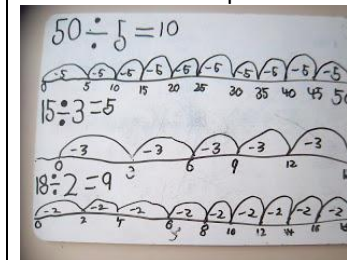 50÷5=10
-5 -5 -5 -5 -5 -5 -5 -5 -5 -5
0 5 10 15 20 25 30 35 40 45 50
15÷3=5
-3 -3 -3 -3 -3
0 3 6 9 12
18÷2=9
-2 -2 -2 -2 -2 -2 -2 -2 -2
0 2 4 6 8 10 12 14 16